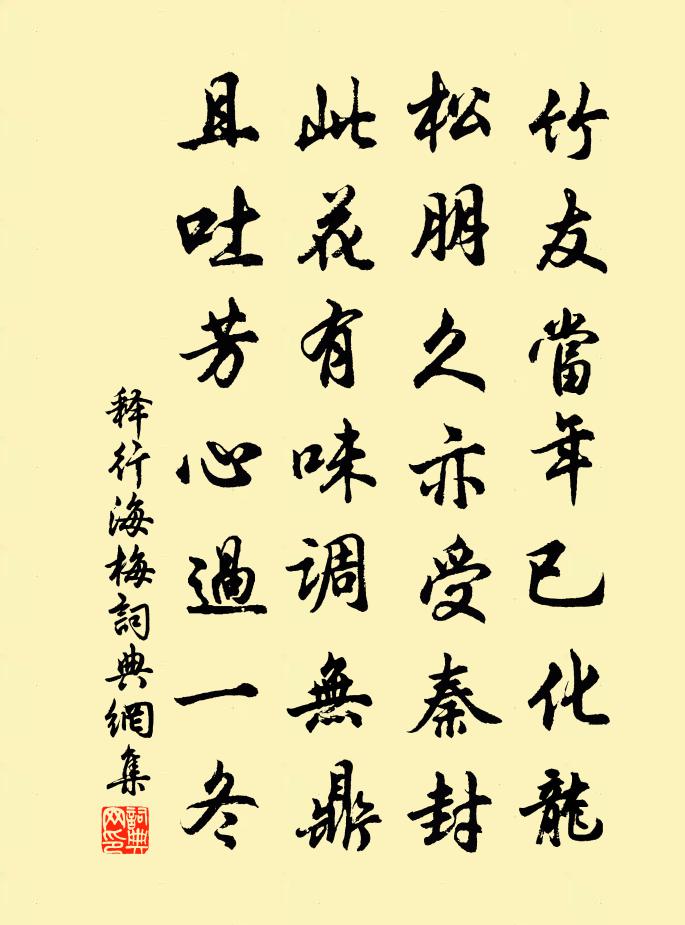 竹友當年已化龍
松朋久亦受秦封
此花有味調無鼎
且吐芳心過一冬
释行海梅詞典網集
詞典網印